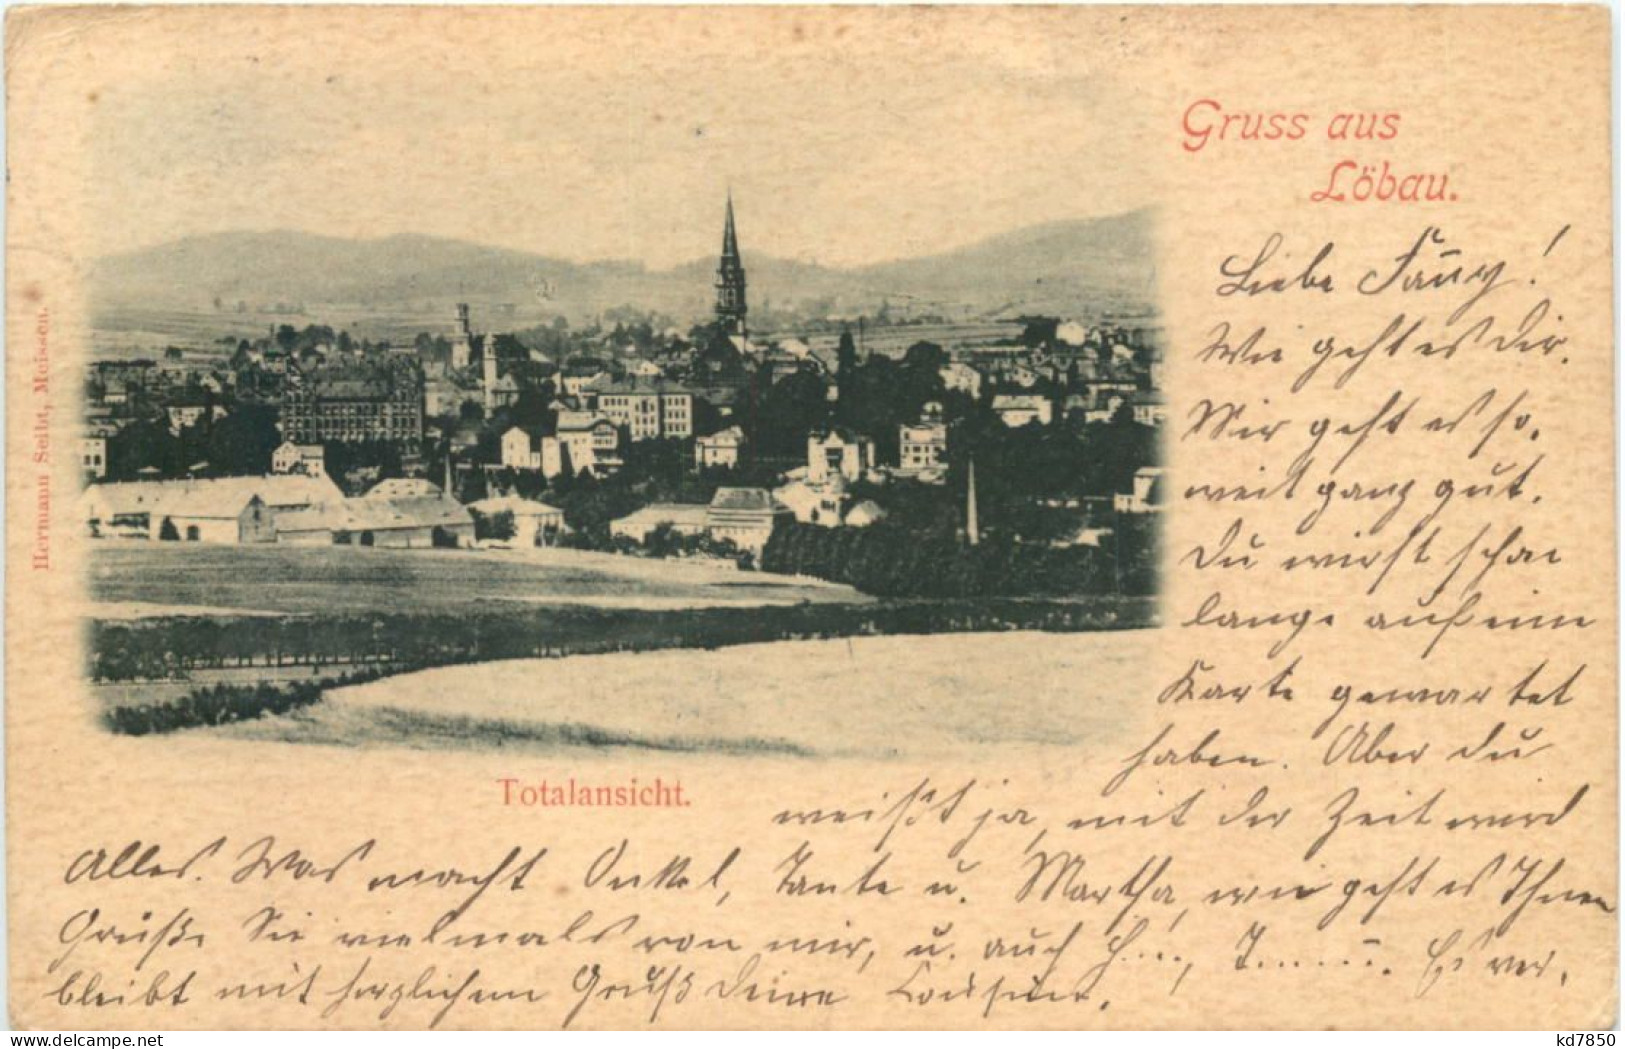 Gruss aus
Löbau.
Hermann Seibt, Meissen.
Liebe Fanny!
Wie geht es Dir.
Mir geht es so,
weit ganz gut.
Du wirst schon
lange auf eine
Karte gewartet
haben. Aber Du
Totalansicht.
weißt ja, mit der Zeit wird
Alles. Was macht Onkel, Tante u. Martha, wie geht es Ihnen
Grüße Sie vielmals von mir, u. auch H...., T....... Es ver.
bleibt mit herzlichem Gruß Deine
www.delcampe.net
kd7850